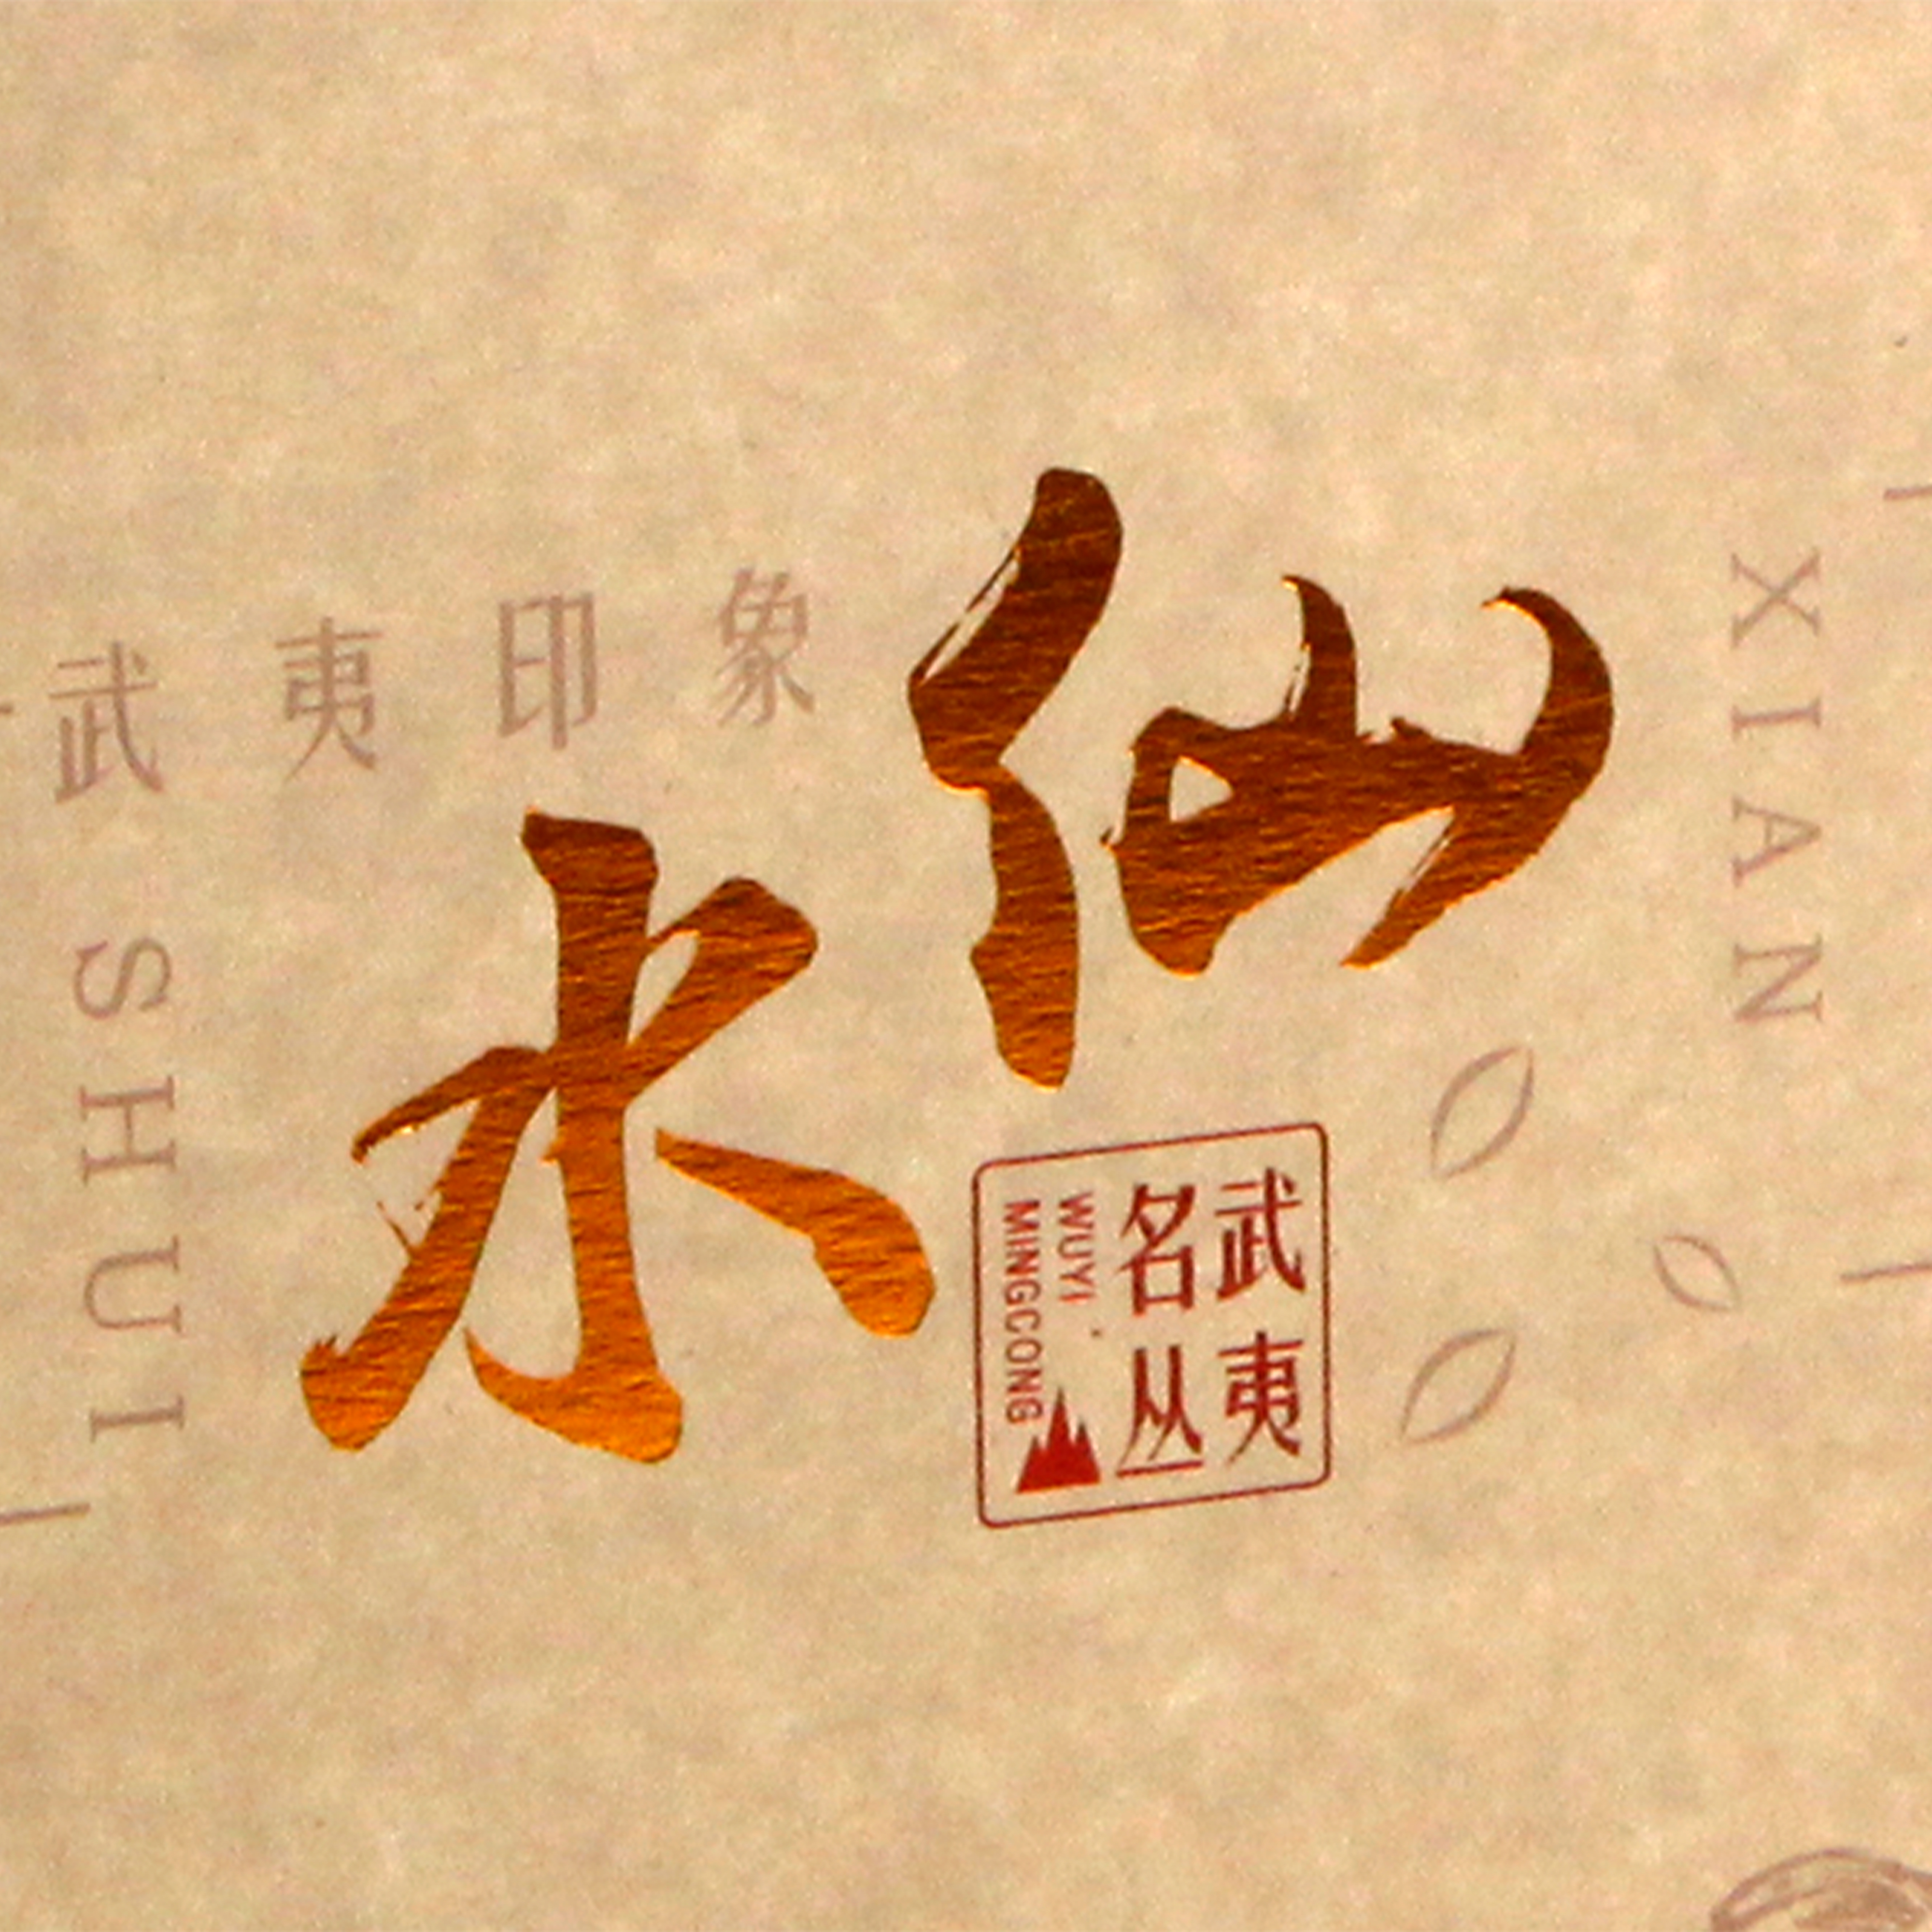 武夷印象
水仙
SHUI
XIAN
武夷
名丛
WUYI
MINGCONG